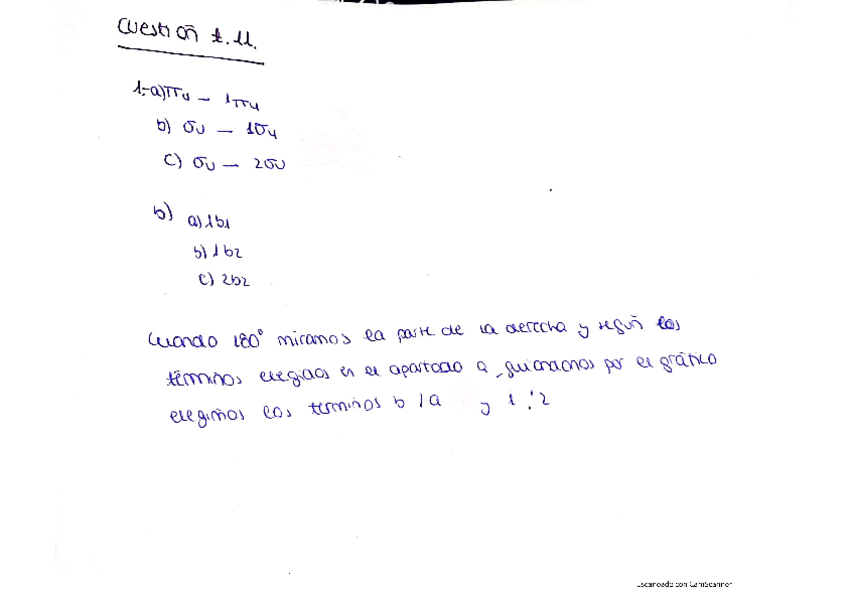 Cuestión t.11.
1.-a) πu — 1πu
b) σu — 1σu
c) σu — 2σu
b) a) 1b1
b) 1b2
c) 2b2
Cuando 180° miramos la parte de la derecha y según los
términos elegidos en el apartado a, guiandonos por el gráfico
elegimos los terminos b / a y 1 : 2
Escaneado con CamScanner